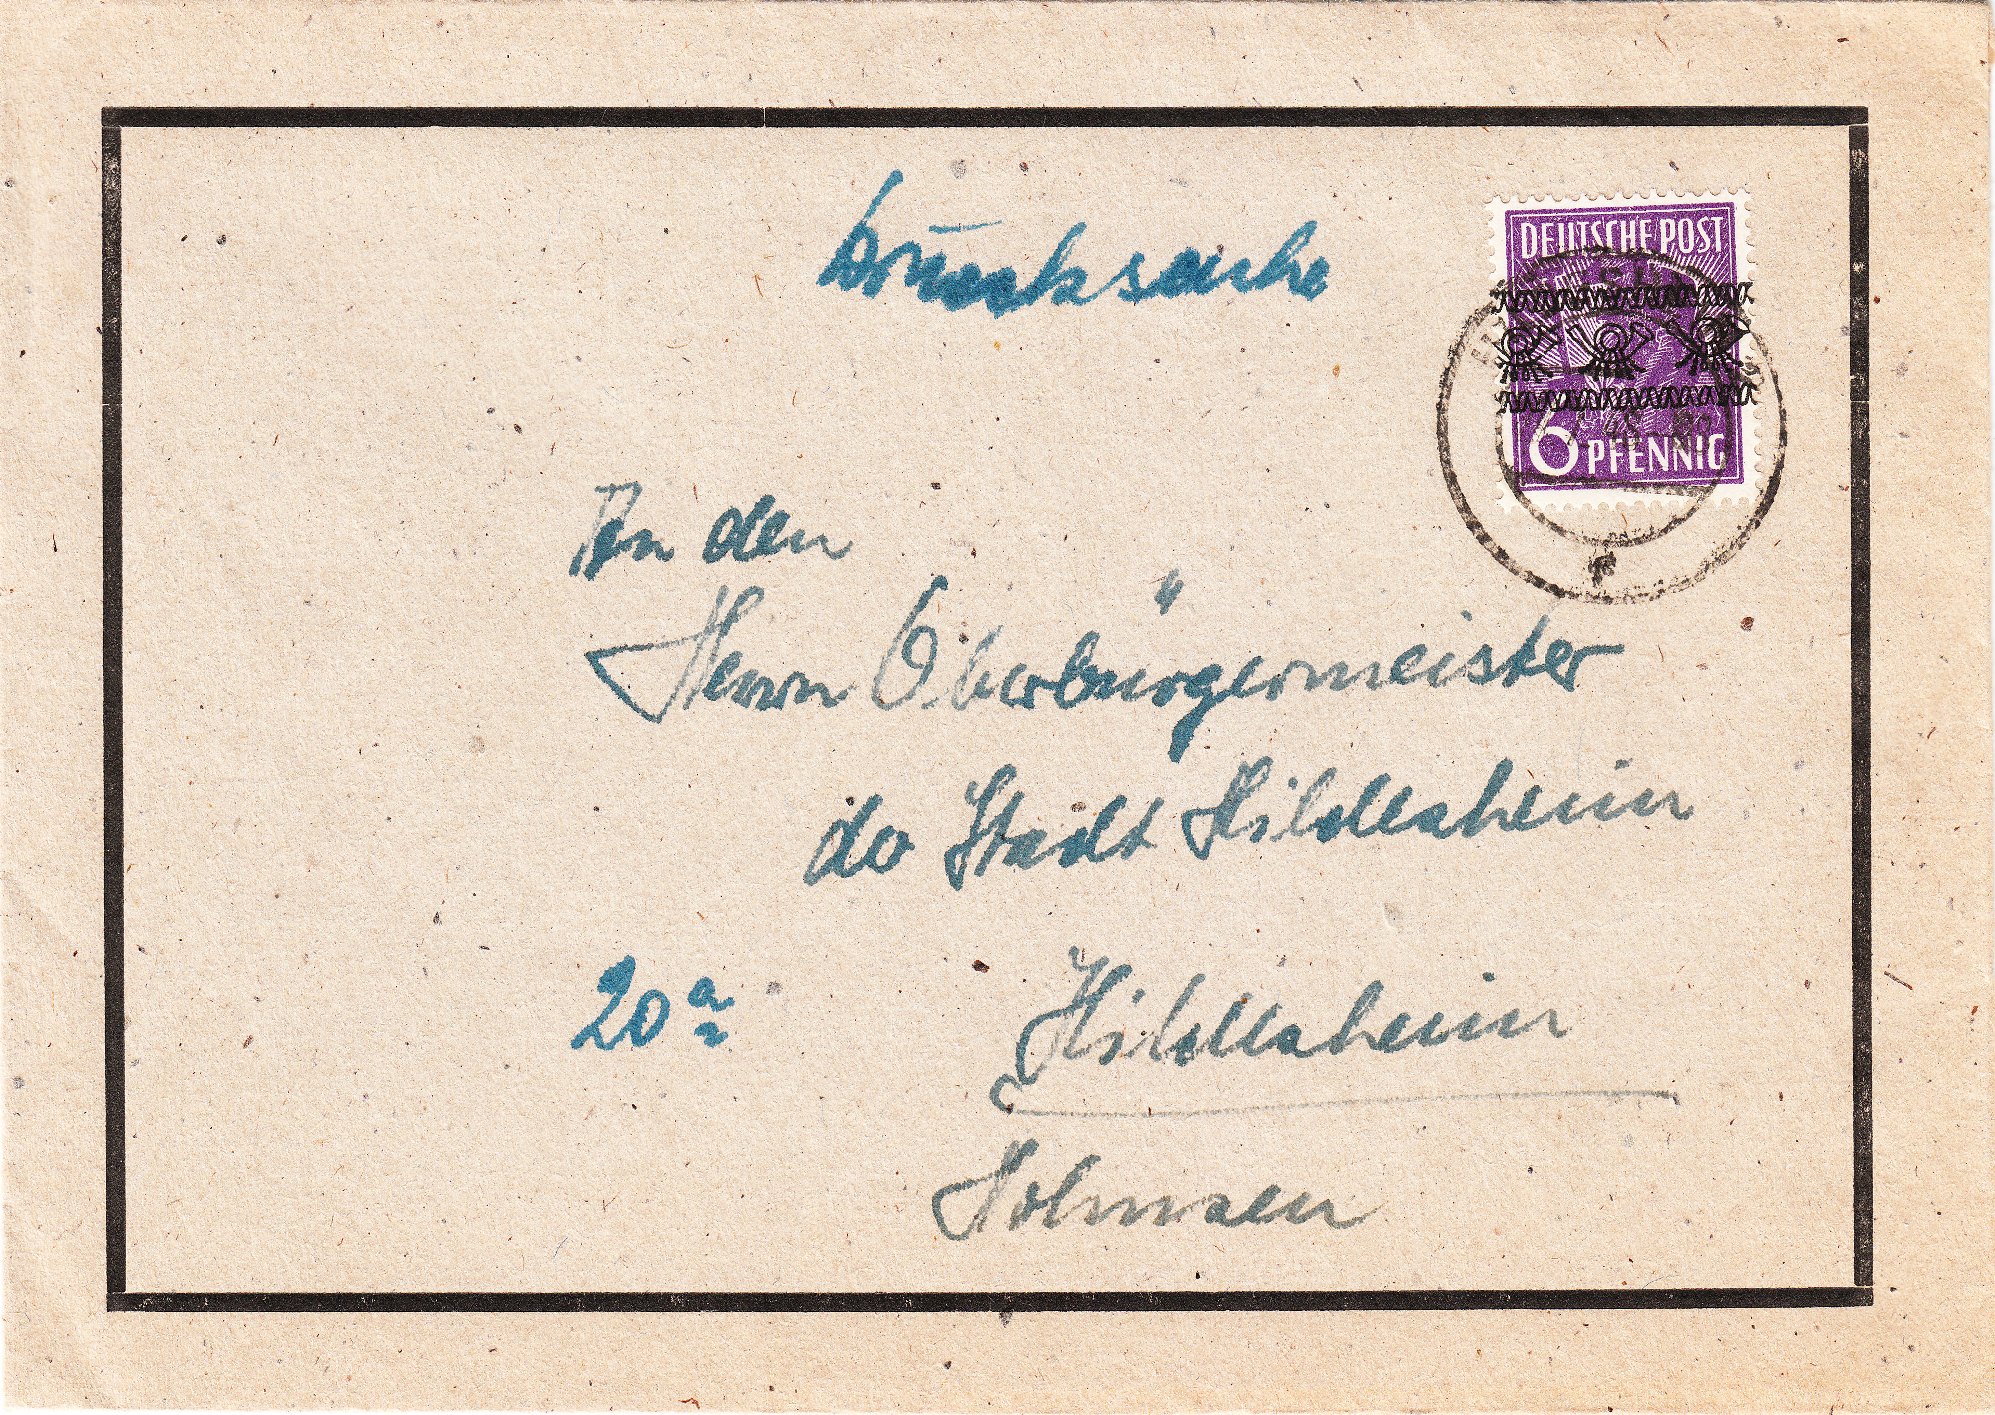 Drucksache
DEUTSCHE POST
6 PFENNIG
An den
Herrn Oberbürgermeister
der Stadt Hildesheim
20a
Hildesheim